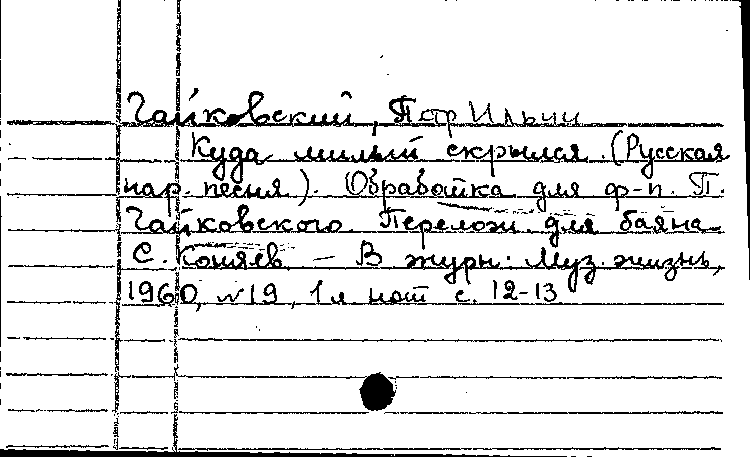 Чайковский, Петр Ильич
Куда милый скрылся. (Русская
нар. песня). Обработка для ф-п. П.
Чайковского. Перелож. для баяна
С. Коняев. – В журн: Муз. жизнь,
1960, №19, 1 л. нот с. 12-13